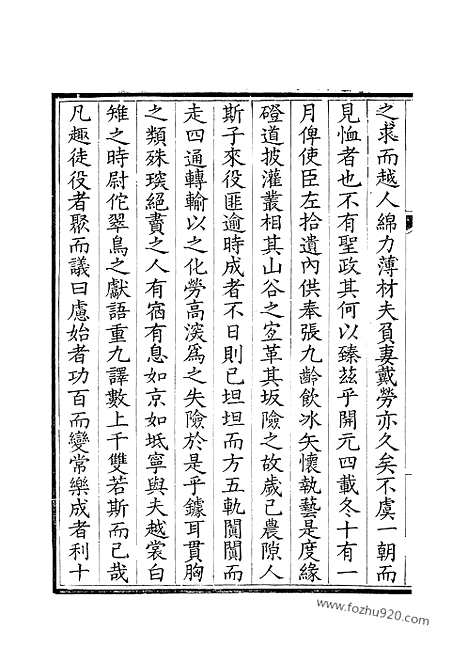 之求而越人綿力薄材夫負妻戴勞亦久矣不虞一朝而
見恤者也不有聖政其何以臻茲乎開元四載冬十有一
月俾使臣左拾遺內供奉張九齡飲冰矢懷執藝是度緣
磴道披灌叢相其山谷之宜革其坂險之故歲已農隙人
斯子來役匪逾時成者不日則已坦坦而方五軌闐闐而
走四通轉輸以之化勞高深為之失險於是乎鐻耳貫胸
之類殊琛絕賮之人有宿有息如京如坻寧與夫越裳白
雉之時尉佗翠鳥之獻語重九譯數上千雙若斯而已哉
凡趣徒役者聚而議曰慮始者功百而變常樂成者利十
www.fozhu920.com